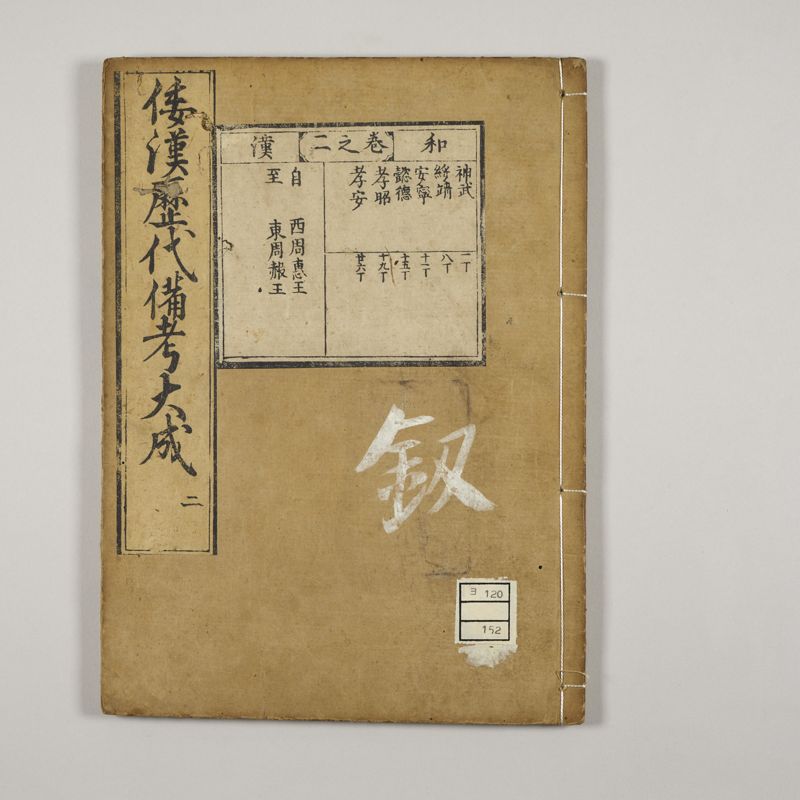 倭漢歴代備考大成 二
和 巻之二 漢
神武 一丁
綏靖 八丁
安寧 十一丁
懿徳 十五丁
孝昭 十九丁
孝安 廿六丁
自 西周惠王
至 東周赧王
釼
ヨ 120
152